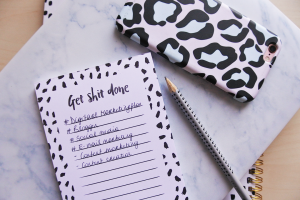 Get shit done
* Digital Marketing plan
* Blogger
* Social media
* E-mail marketing
- Content marketing
- Content creation